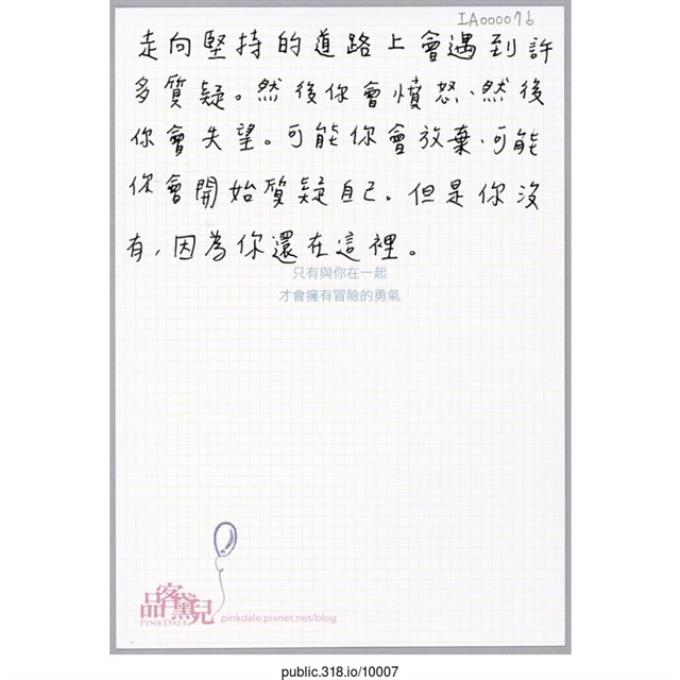 IA000076
走向堅持的道路上會遇到許
多質疑。然後你會憤怒、然後
你會失望。可能你會放棄、可能
你會開始質疑自己。但是你沒
有,因為你還在這裡。
只有與你在一起
才會擁有冒險的勇氣
品客黛兒
PINKDALE
pinkdale.pixnet.net/blog
public.318.io/10007